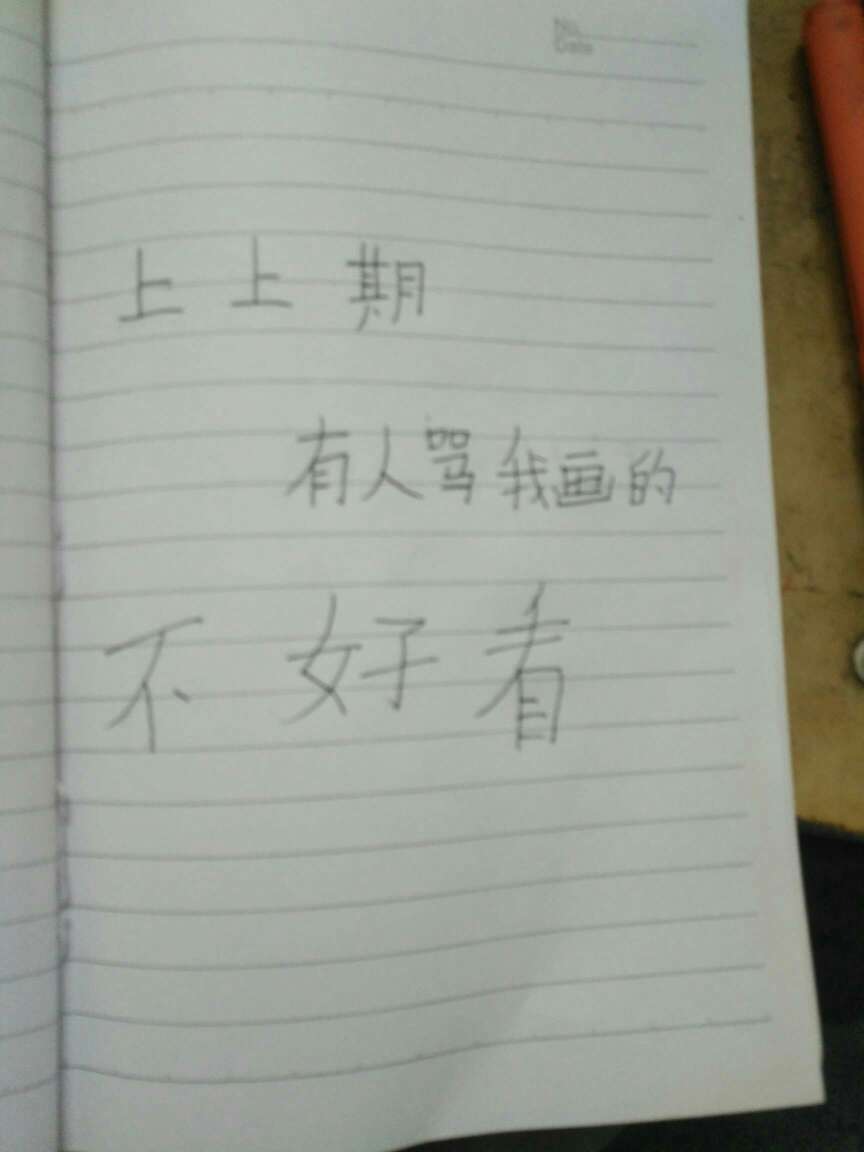 No.
Date
上上期
有人骂我画的
不好看